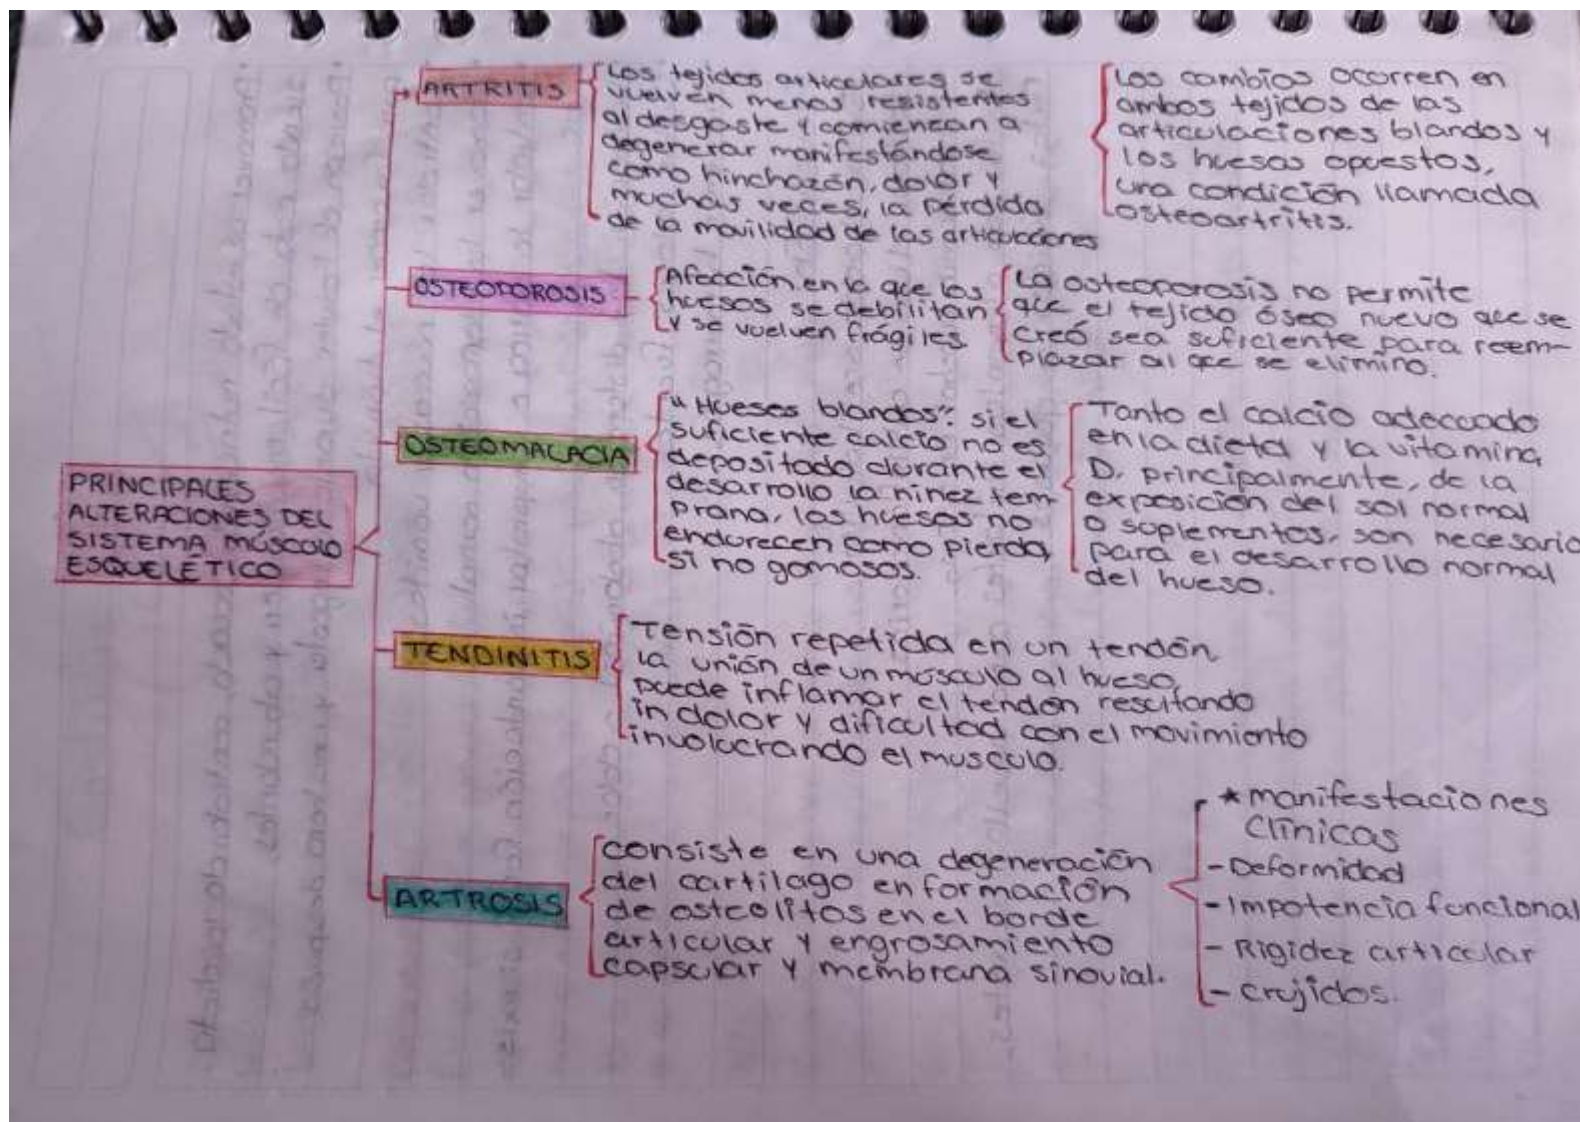 PRINCIPALES
ALTERACIONES DEL
SISTEMA MÚSCULO
ESQUELÉTICO
ARTRITIS
Los tejidos articulares se
vuelven menos resistentes
al desgaste y comienzan a
degenerar manifestándose
como hinchazón, dolor y
muchas veces, la pérdida
de la movilidad de las articulaciones
Los cambios ocurren en
ambos tejidos de las
articulaciones blandos y
los huesos opuestos,
una condición llamada
osteoartritis.
OSTEOPOROSIS
Afección en la que los
huesos se debilitan
y se vuelven frágiles.
La osteoporosis no permite
que el tejido óseo nuevo que se
creó sea suficiente para reem-
plazar al que se elimino.
OSTEOMALACIA
"Hueses blandos": si el
suficiente calcio no es
depositado durante el
desarrollo la ninez tem
prana, los huesos no
endurecen como pierda,
si no gomosos.
Tanto el calcio adecuado
en la dieta y la vitamina
D, principalmente, de la
exposición del sol normal
o suplementos, son necesario
para el desarrollo normal
del hueso.
TENDINITIS
Tensión repetida en un tendón
la unión de un músculo al hueso,
puede inflamar el tendón resultando
in dolor y dificultad con el movimiento
involucrando el musculo.
ARTROSIS
consiste en una degeneración
del cartílago en formación
de osteolitos en el borde
articular y engrosamiento
capsular y membrana sinovial.
* manifestaciones
Clínicas
- Deformidad
- Impotencia funcional
- Rigidez articular
- Crujidos.